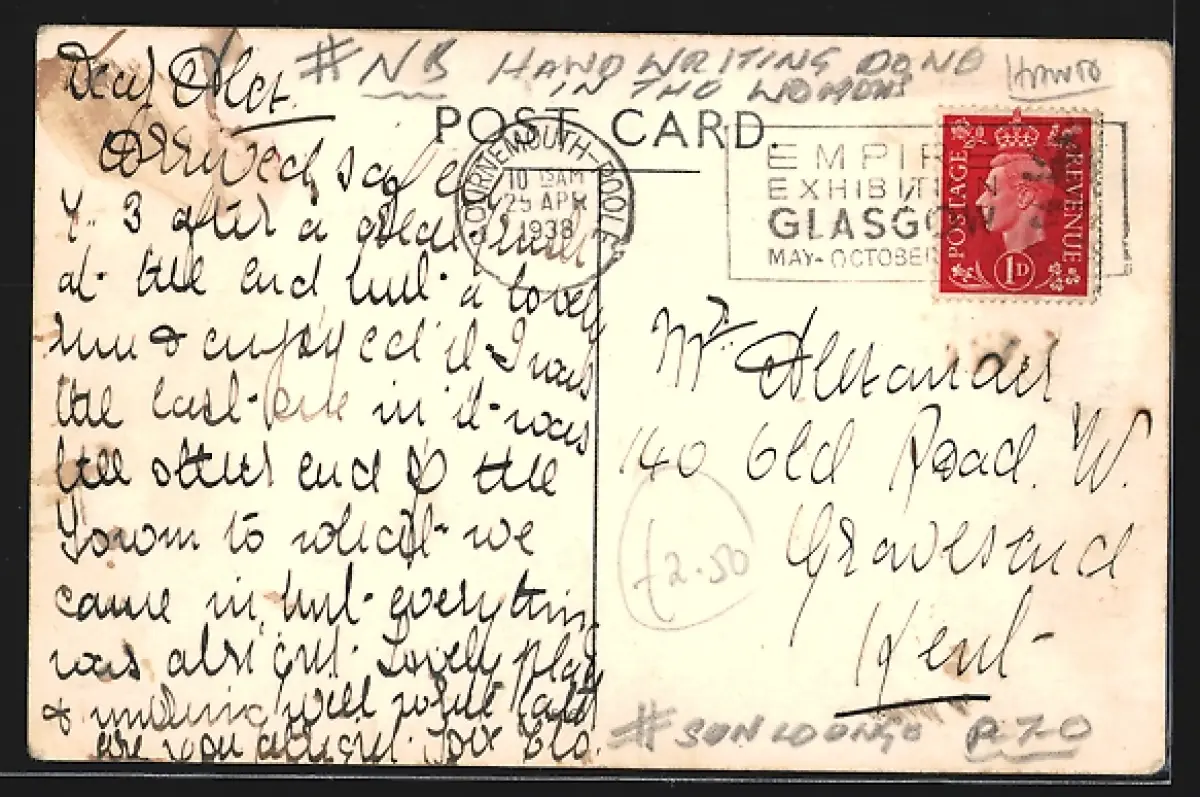 Dear Alex.
# NB HANDWRITING DONE
IN THE
POST CARD.
BOURNEMOUTH-POOLE
10 15AM
25 APR
1938
EMPIRE
EXHIBITION
GLASGOW
MAY-OCTOBER
POSTAGE
REVENUE
1D
Arrived safe
after a
at the end but a lovely
run & enjoyed it I was
the last one in it was
the other end of the
Town to which we
came in, but everything
was alright. Lovely place
& will write later
are you alright. Love
Mr. Alexander
140 Old Road. W.
Gravesend
Kent
£2.50
# P.T.O